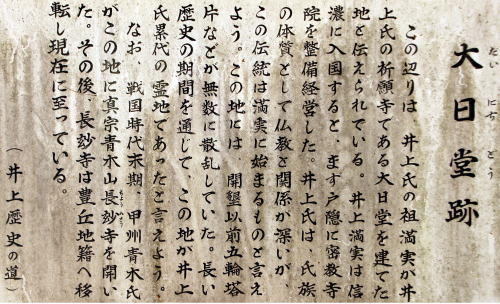 大日堂跡
たい にち どう
この辺りは、井上氏の祖満実が井
上氏の祈願寺である大日堂を建てた
地と伝えられている。井上満実は信
濃に入国すると、ます戸隠に密教寺
院を整備経営した。井上氏は、氏族
の体質として仏教と関係が深いが、
この伝統は満実に始まるものと言え
よう。この地には、開墾以前五輪塔
片などが無数に散乱していた。長い
歴史の期間を通じて、この地が井上
氏累代の霊地であったと言えよう。
なお、戦国時代末期、甲州青木氏
がこの地に真宗青木山長玅寺を開い
た。その後、長玅寺は豊丘地籍へ移
転し現在に至っている。
(井上歴史の道)